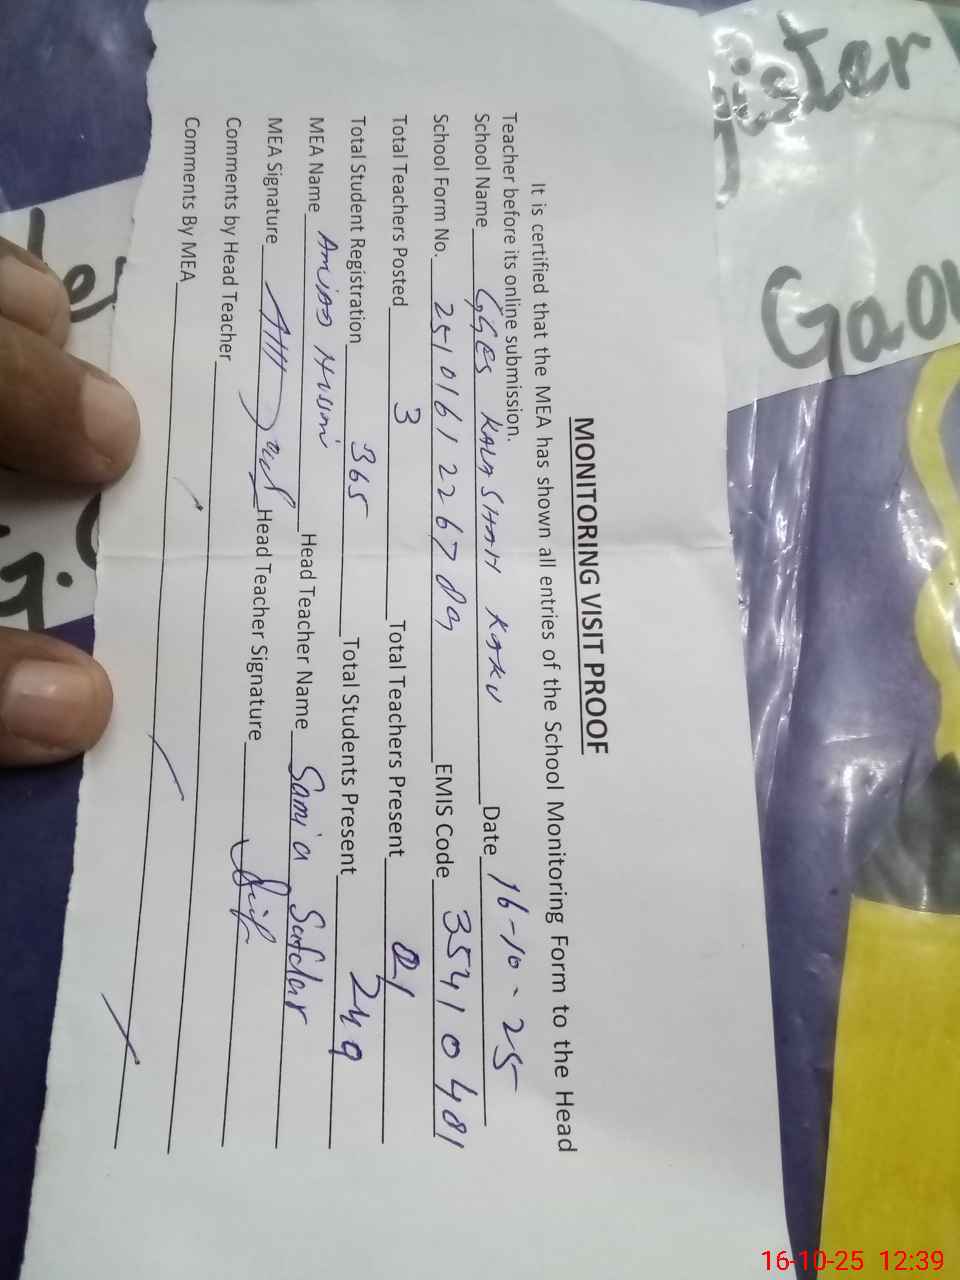 MONITORING VISIT PROOF
It is certified that the MEA has shown all entries of the School Monitoring Form to the Head
Teacher before its online submission.
School Name GGES KALA SHAH KAKU Date 16-10-25
School Form No. 251016122678 EMIS Code 35410481
Total Teachers Posted 3 Total Teachers Present 01
Total Student Registration 365 Total Students Present 249
MEA Name Head Teacher Name Samia Safdar
MEA Signature Head Teacher Signature
Comments by Head Teacher
Comments By MEA
gister
Gaon
16-10-25 12:39